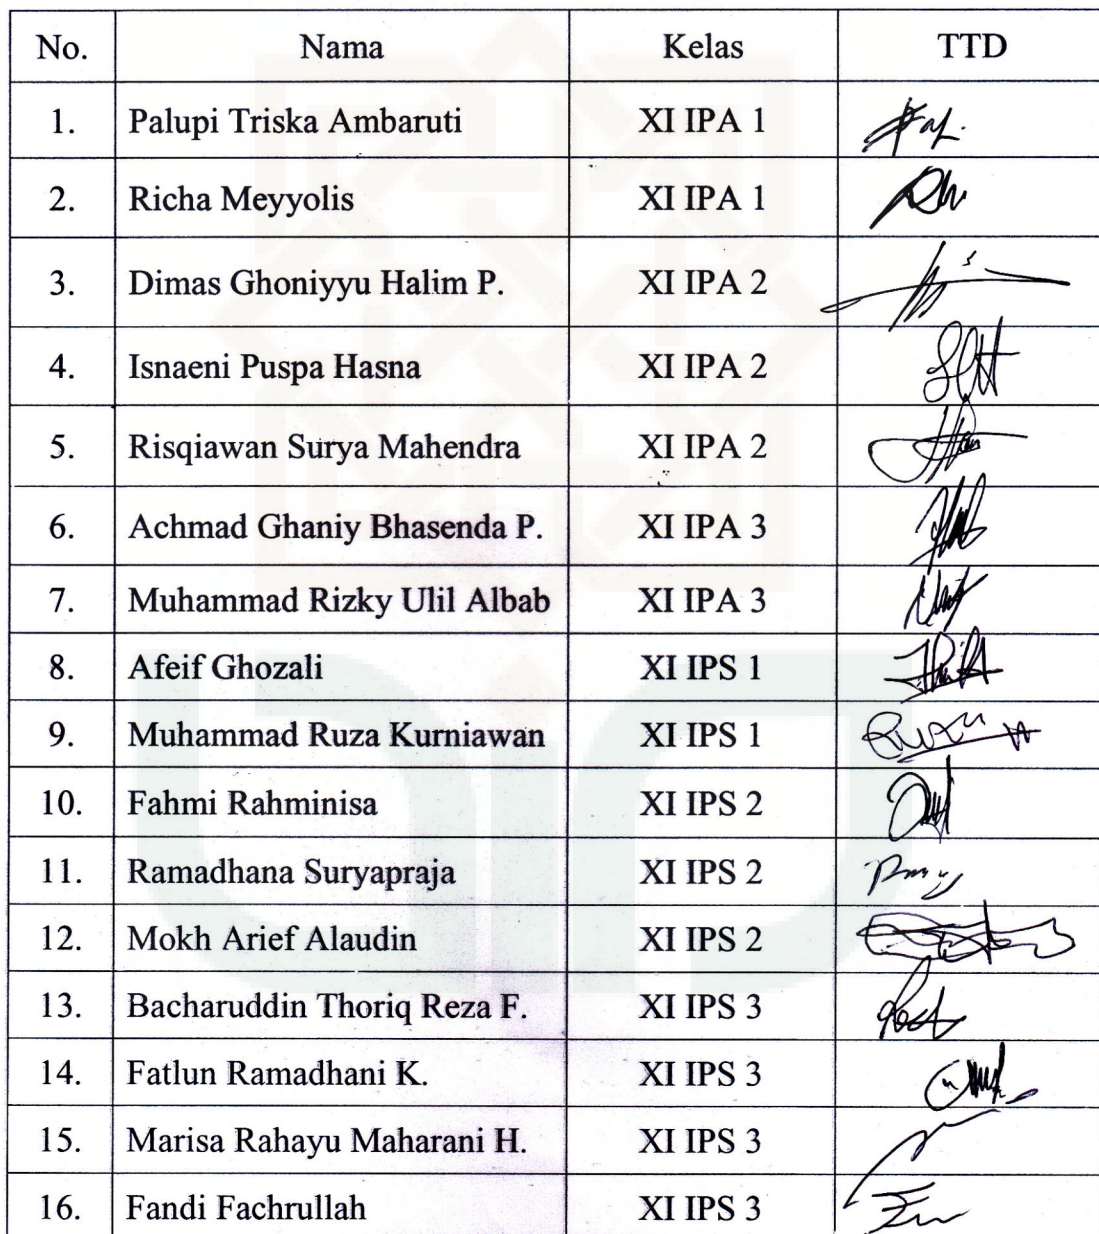 No. Nama Kelas TTD
1. Palupi Triska Ambaruti XI IPA 1
2. Richa Meyyolis XI IPA 1
3. Dimas Ghoniyyu Halim P. XI IPA 2
4. Isnaeni Puspa Hasna XI IPA 2
5. Risqiawan Surya Mahendra XI IPA 2
6. Achmad Ghaniy Bhasenda P. XI IPA 3
7. Muhammad Rizky Ulil Albab XI IPA 3
8. Afeif Ghozali XI IPS 1
9. Muhammad Ruza Kurniawan XI IPS 1
10. Fahmi Rahminisa XI IPS 2
11. Ramadhana Suryapraja XI IPS 2
12. Mokh Arief Alaudin XI IPS 2
13. Bacharuddin Thoriq Reza F. XI IPS 3
14. Fatlun Ramadhani K. XI IPS 3
15. Marisa Rahayu Maharani H. XI IPS 3
16. Fandi Fachrullah XI IPS 3